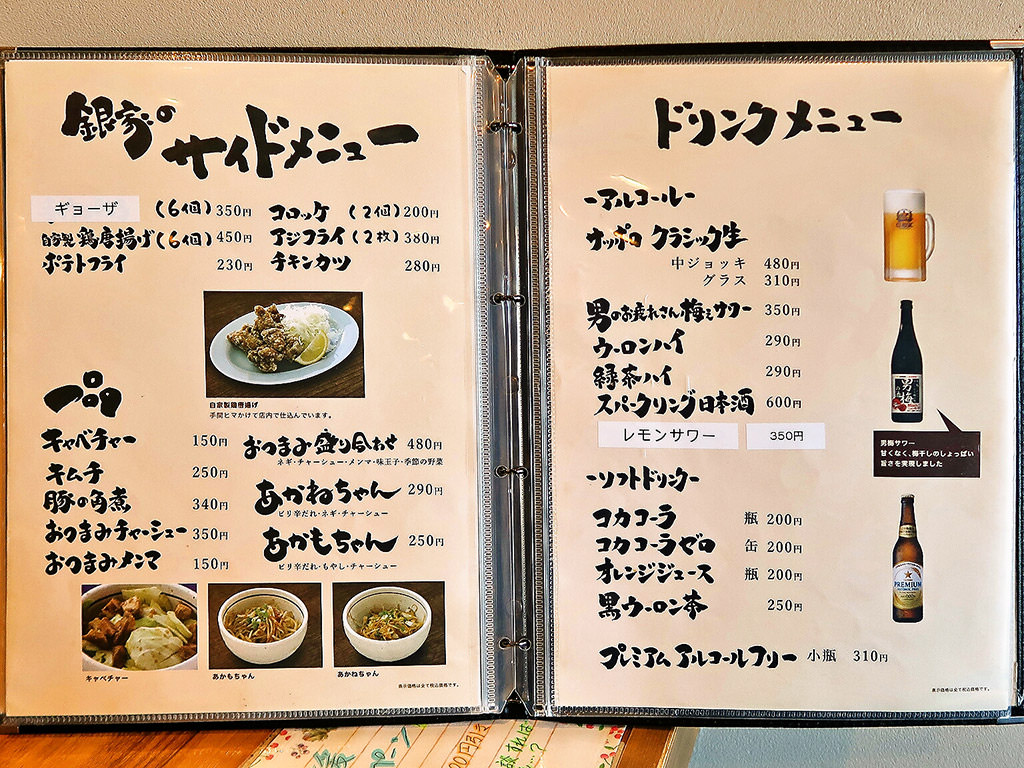 銀家の
サイドメニュー
ギョーザ (6個) 350円
自家製 鶏唐揚げ(6個) 450円
ポテトフライ 230円
コロッケ (2個) 200円
アジフライ (2枚) 380円
チキンカツ 280円
自家製鶏唐揚げ
手間ヒマかけて店内で仕込んでいます。
一品
キャベチャー 150円
キムチ 250円
豚の角煮 340円
おつまみチャーシュー 350円
おつまみメンマ 150円
おつまみ盛り合わせ 480円
ネギ・チャーシュー・メンマ・味玉子・季節の野菜
あかねちゃん 290円
ピリ辛だれ・ネギ・チャーシュー
あかもちゃん 250円
ピリ辛だれ・もやし・チャーシュー
キャベチャー
あかもちゃん
あかねちゃん
表示価格は全て税込価格です。
ドリンクメニュー
-アルコール-
サッポロ クラシック生
中ジョッキ 480円
グラス 310円
男のお疲れさん梅ぇサワー 350円
ウーロンハイ 290円
緑茶ハイ 290円
スパークリング日本酒 600円
レモンサワー 350円
男梅サワー
甘くなく、梅干しのしょっぱい
旨さを実現しました
-ソフトドリンク-
コカコーラ 瓶 200円
コカコーラゼロ 缶 200円
オレンジジュース 瓶 200円
黒ウーロン茶 250円
プレミアムアルコールフリー 小瓶 310円
PREMIUM
表示価格は全て税込価格です。